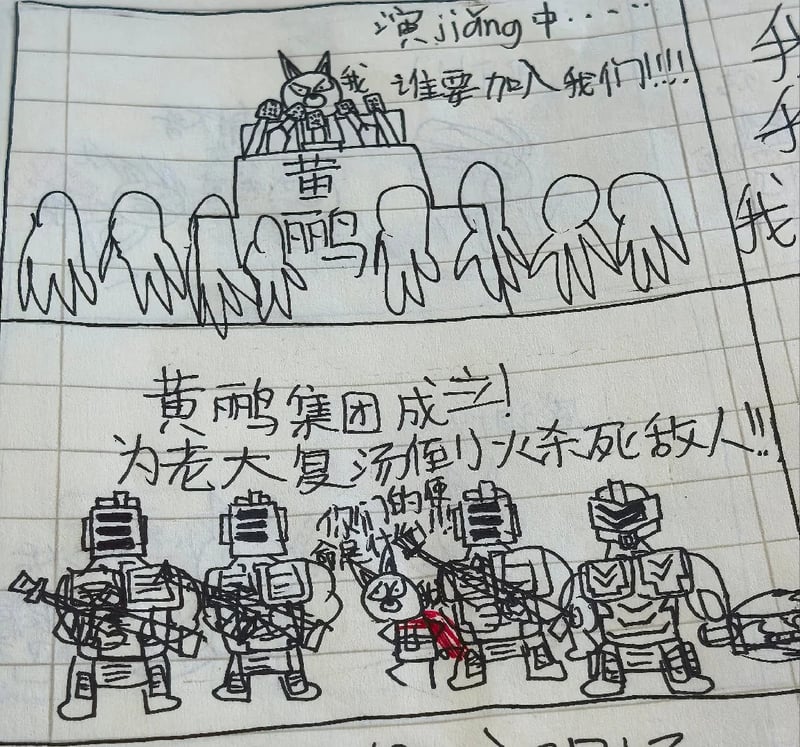 演jiǎng中……
我
谁要加入我们!!!!
黄
鹂
我
我
我
黄鹂集团成立!
为老大复汤倒小火杀死敌人!!!
你们的原